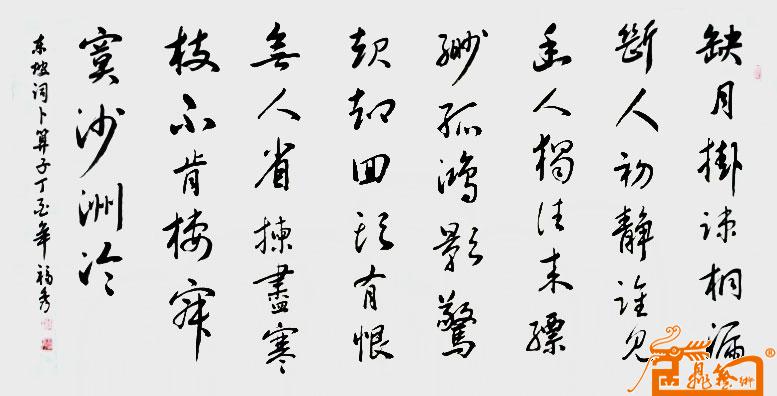 缺月掛疎桐漏
斷人初靜誰見
幽人獨往来縹
緲孤鴻影驚
起却回頭有恨
無人省揀盡寒
枝不肯棲寂
寞沙洲冷
东坡词卜算子丁酉年福秀